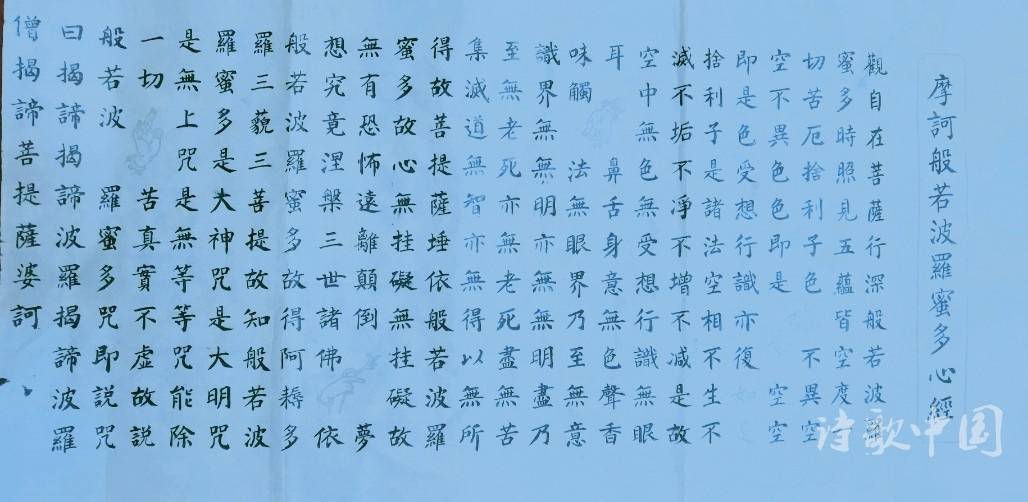 摩訶般若波羅蜜多心經
觀自在菩薩行深般若波羅
蜜多時照見五蘊皆空度
切苦厄捨利子色 不異空
空不異色色即是 空空
即是色受想行識亦復如
捨利子是諸法空相不生不
滅不垢不淨不增不減是故
空中無色無受想行識無眼
耳 鼻舌身意無色聲香
味觸 法無眼界乃至無意
識界無無明亦無無明盡乃
至無老死亦無老死盡無苦
集滅道無智亦無得以無所
得故菩提薩埵依般若波羅
蜜多故心無挂礙無挂礙故
無有恐怖遠離顛倒 夢
想究竟涅槃三世諸佛 依
般若波羅蜜多故得阿耨多
羅三藐三菩提故知般若波
羅蜜多是大神咒是大明咒
是無上咒是無等等咒能除
一切 苦真實不虛故説
般若波 羅蜜多咒即説咒
曰揭諦揭諦波羅揭諦波羅
僧揭諦菩提薩婆訶
诗歌中国